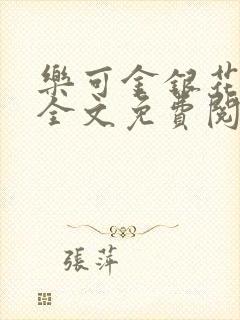 樂可金銀花
全文免費閱
張萍